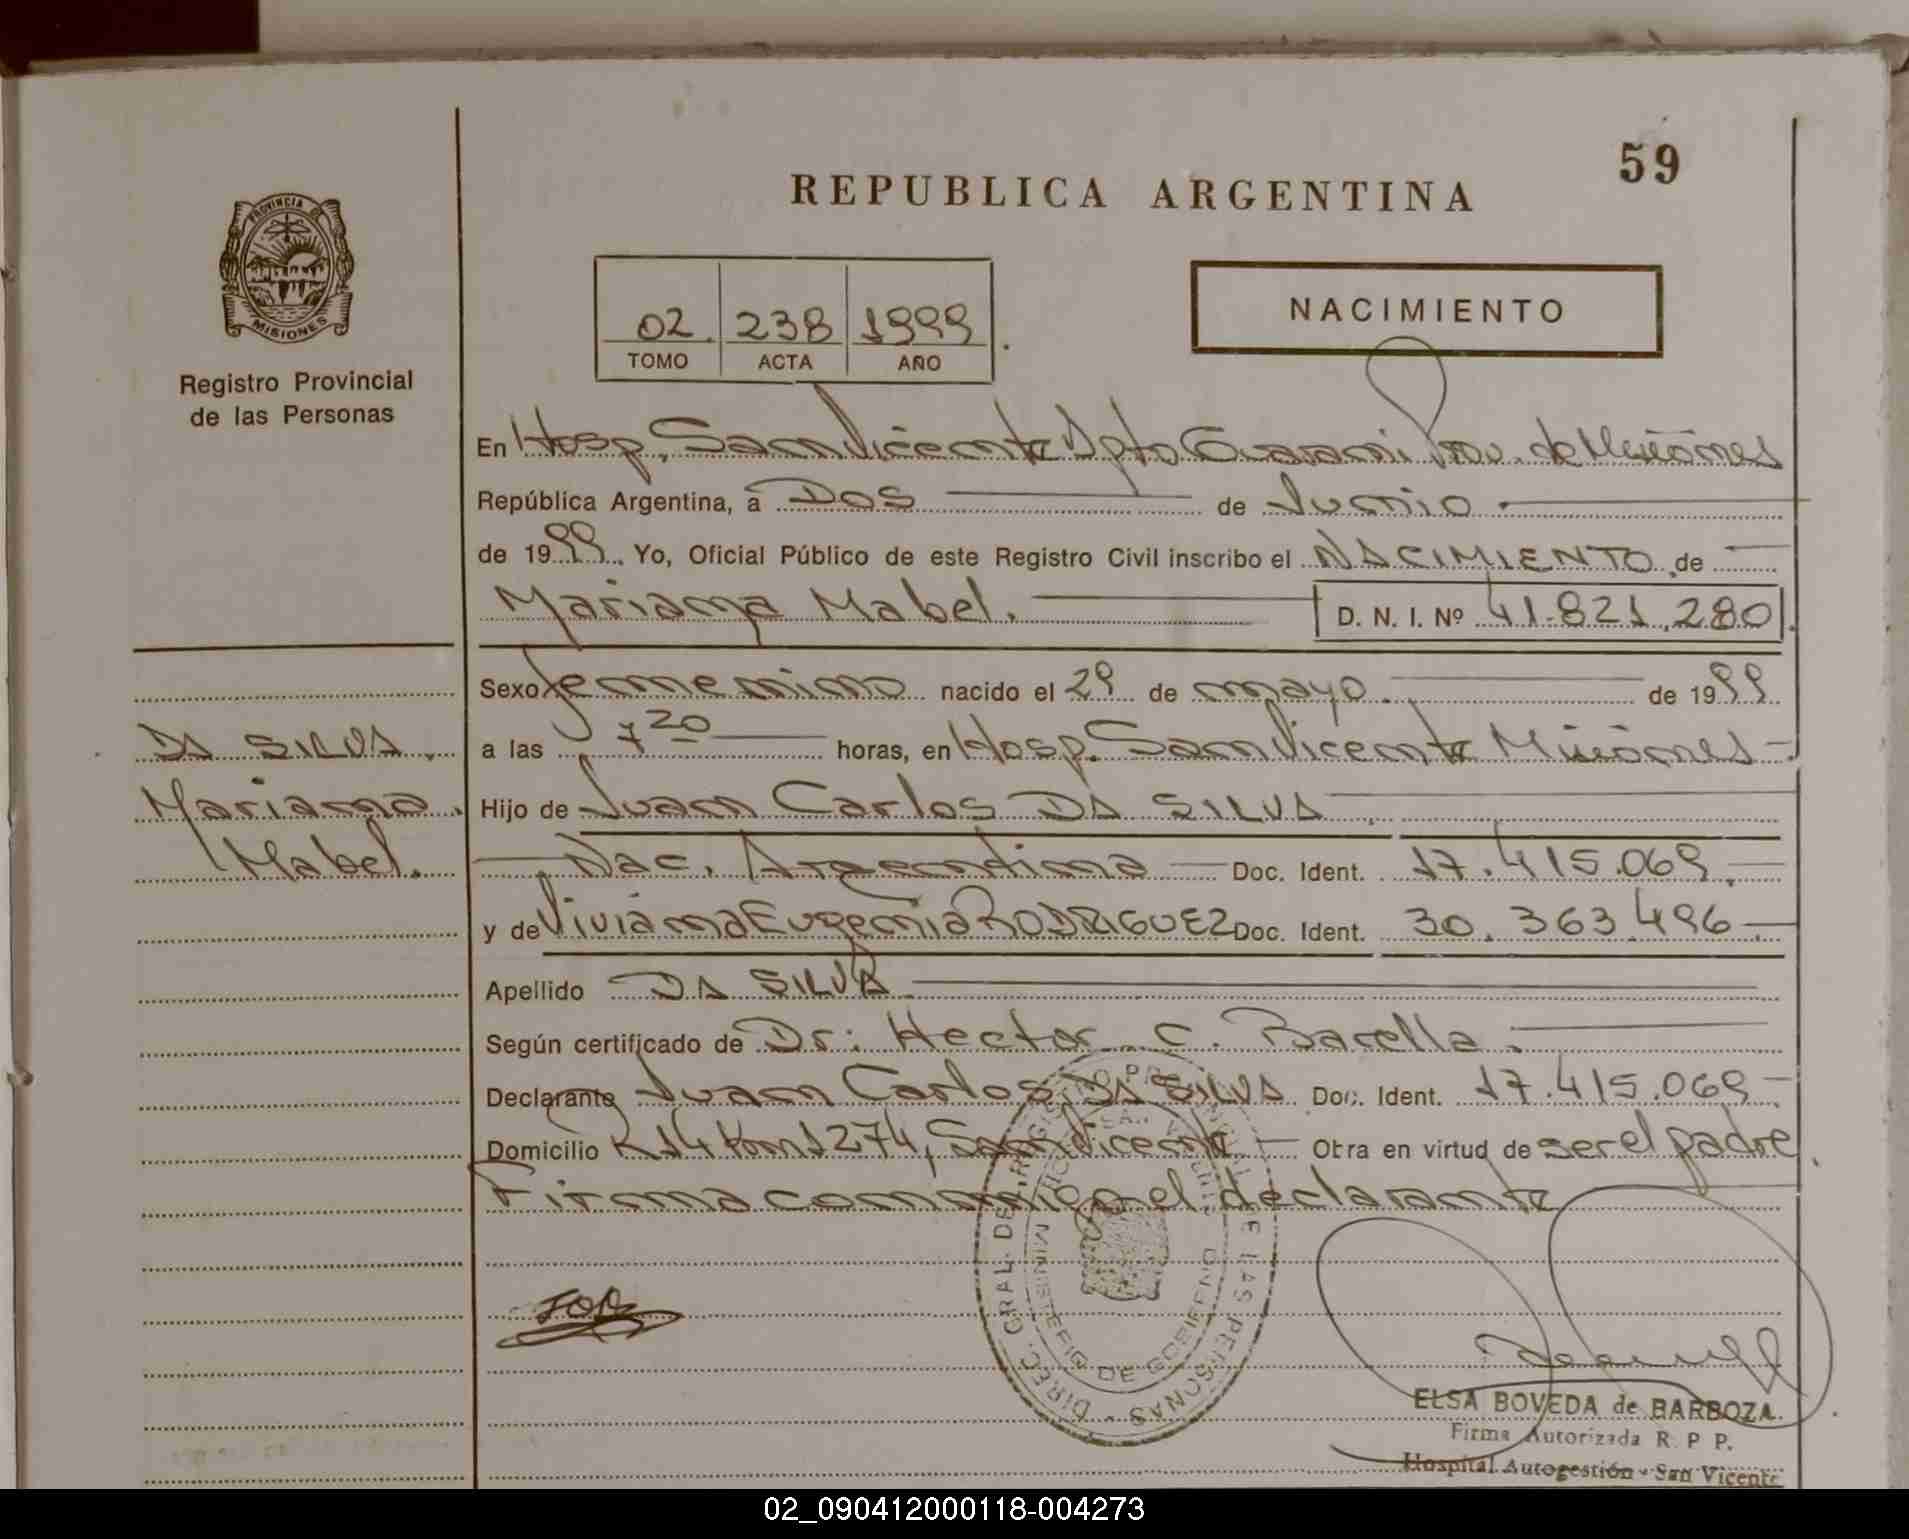 59
REPUBLICA ARGENTINA
PROVINCIA DE
MISIONES
Registro Provincial
de las Personas
02. 238 1999
TOMO ACTA AÑO
NACIMIENTO
En Hosp. San Vicente Dpto Guarani Prov. de Misiones
República Argentina, a Dos de Junio
de 1999 Yo, Oficial Público de este Registro Civil inscribo el NACIMIENTO de
Mariana Mabel. D. N. I. Nº 41.821.280
Sexo femenino nacido el 29 de mayo de 1999
a las 7 20 horas, en Hosp. San Vicente Misiones
Hijo de Juan Carlos DA SILVA
Nac. Argentina Doc. Ident. 17.415.069
y de Viviana Eugenia RODRIGUEZ Doc. Ident. 30.363.496
Apellido DA SILVA
Según certificado de Dr: Hector C. Bacella.
Declarante Juan Carlos DA SILVA Doc. Ident. 17.415.069
Domicilio R14 Km 1274, San Vicente Otra en virtud de ser el padre
Firma conmigo el declarante
DA SILVA.
Mariana
Mabel.
DIREC. GRAL. DEL REGISTRO PROVINCIAL DE LAS PERSONAS
MINISTERIO DE GOBIERNO
ELSA BOVEDA de BARBOZA
Firma Autorizada R. P P.
Hospital Autogestión - San Vicente
02_090412000118-004273